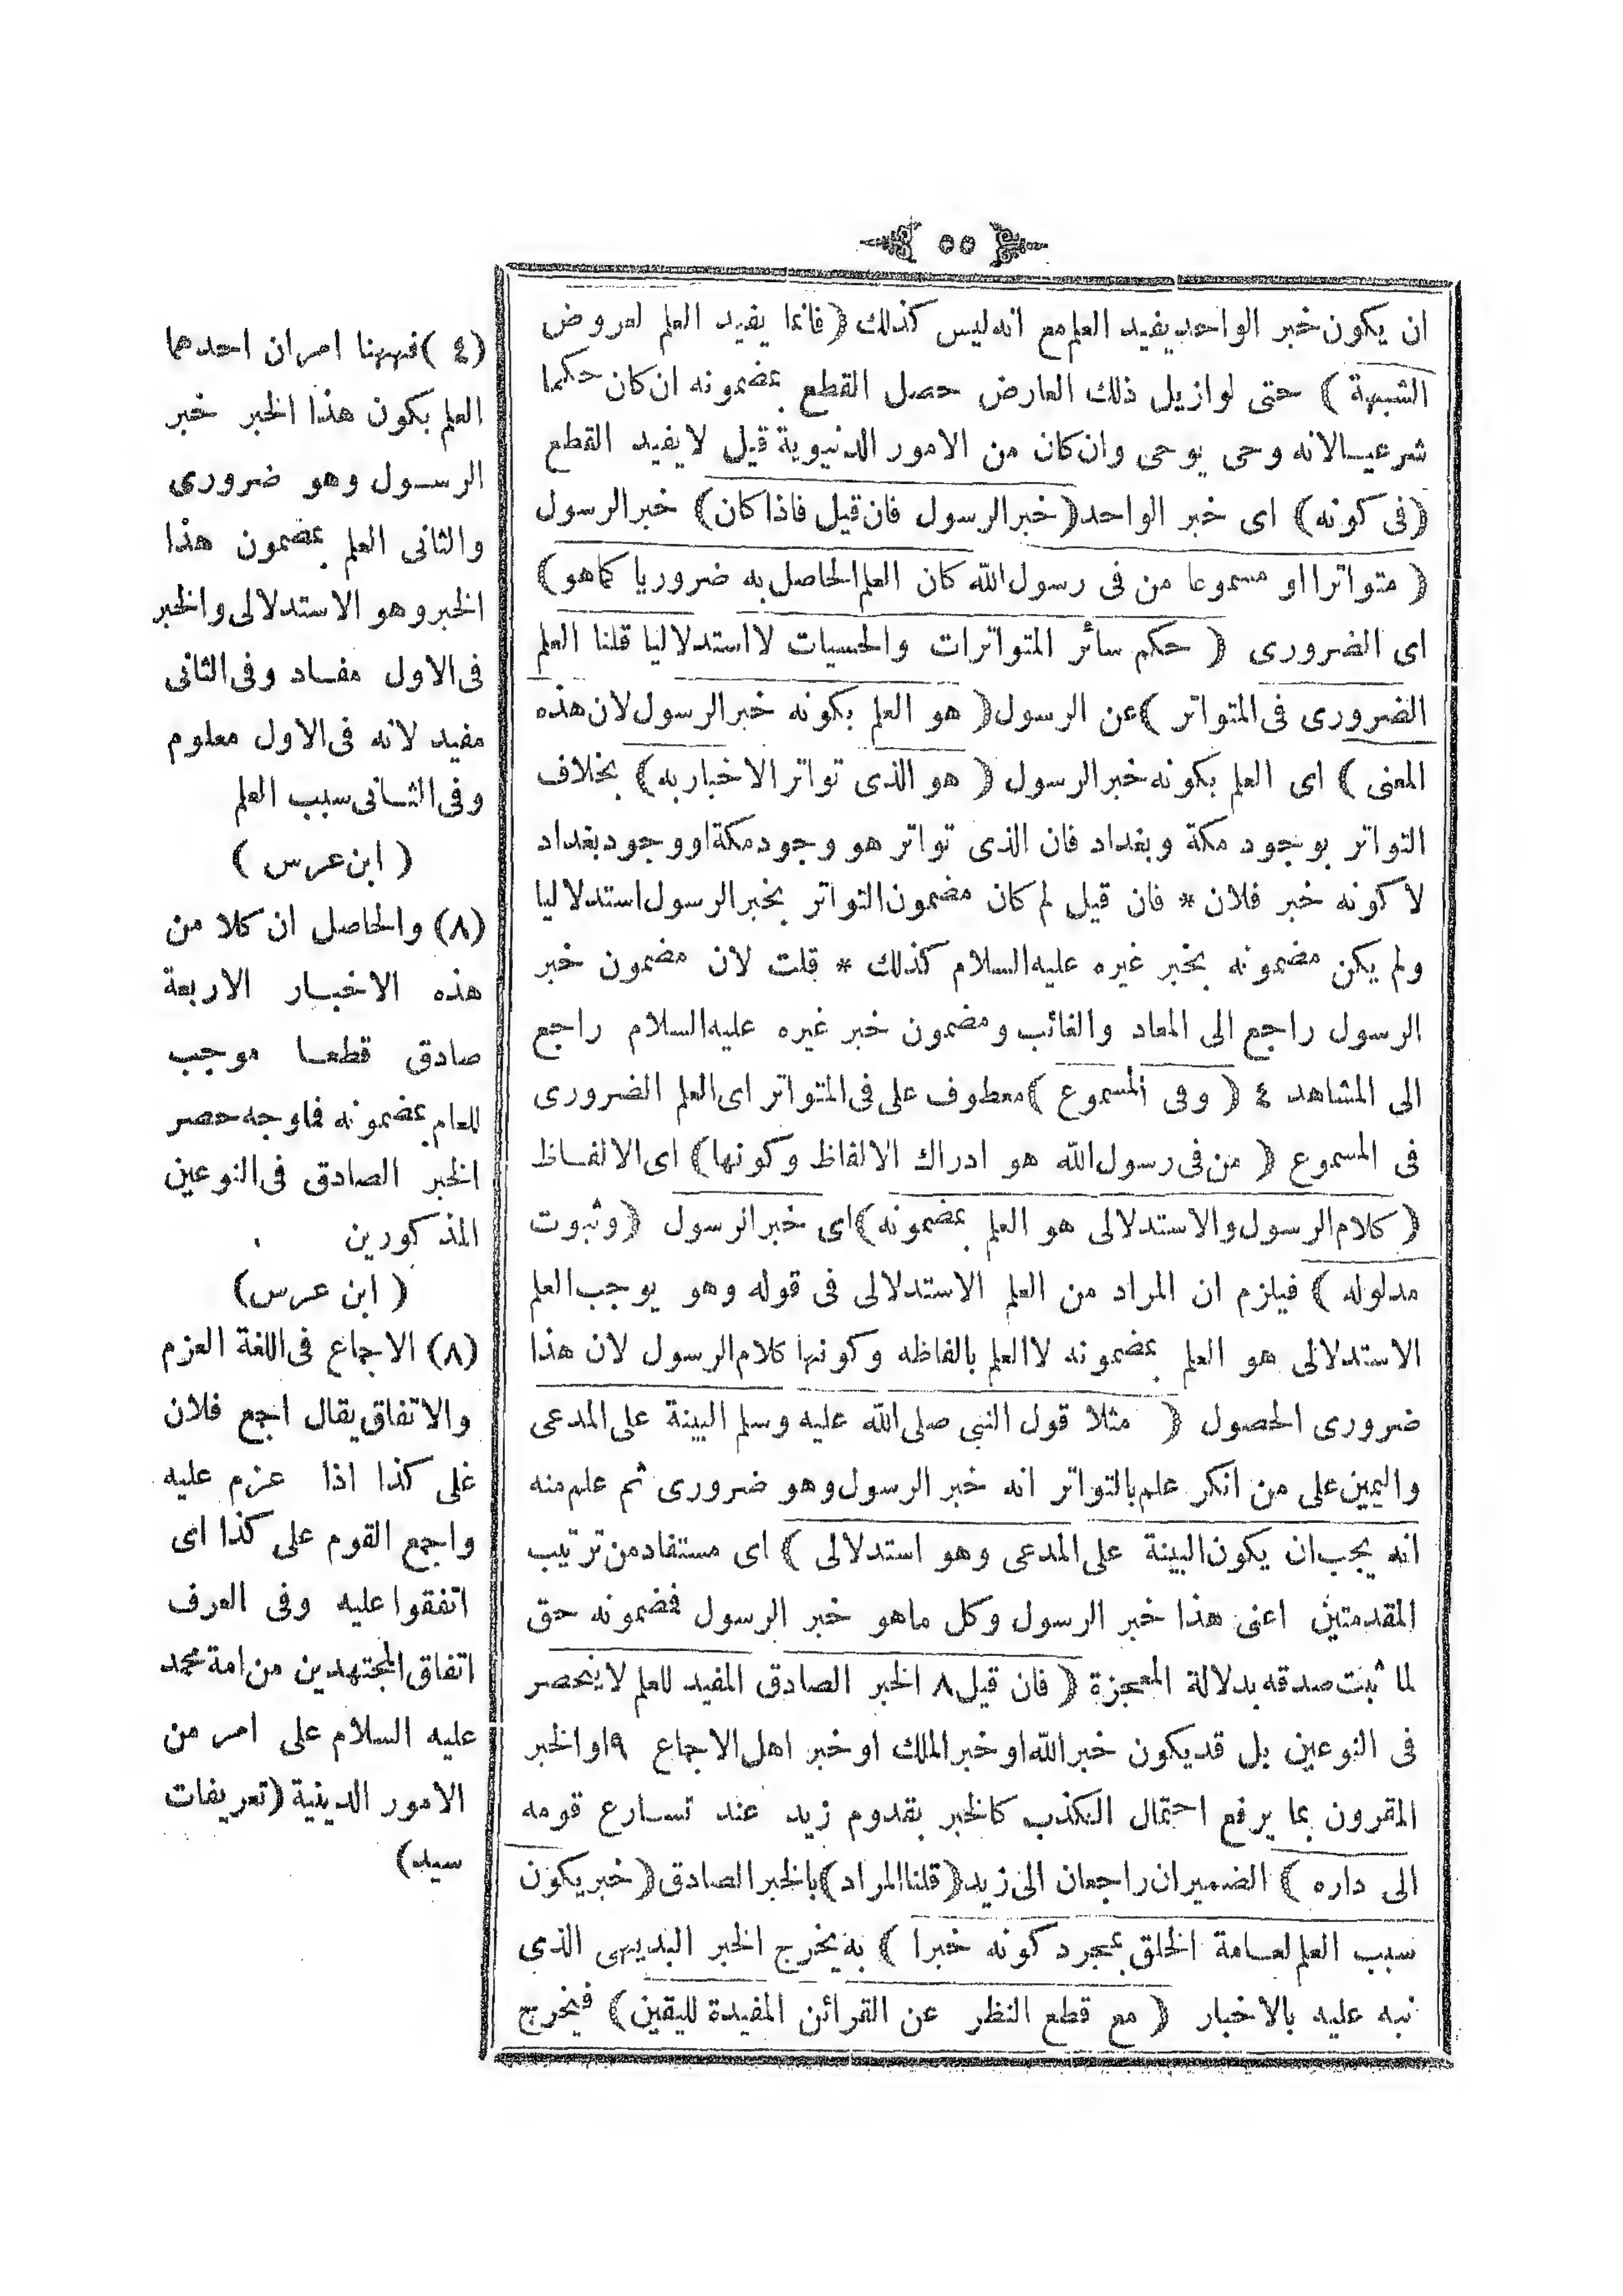 ٥٥
ان يكون خبر الواحد يفيد العلم مع انه ليس كذلك ﴿ فانما يفيد العلم لعروض
الشبهة ﴾ حتى لو ازيل ذلك العارض حصل القطع بمضمونه ان كان حكما
شرعيا لانه وحى يوحى وان كان من الامور الدنيوية قيل لا يفيد القطع
﴿ فى كونه ﴾ اى خبر الواحد ﴿ خبر الرسول فان قيل فاذا كان ﴾ خبر الرسول
﴿ متواترا او مسموعا من فى رسول الله كان العلم الحاصل به ضروريا كما هو ﴾
اى الضرورى ﴿ حكم سائر المتواترات والحسيات لا استدلاليا قلنا العلم
الضرورى فى المتواتر ﴾ عن الرسول ﴿ هو العلم بكونه خبر الرسول لان هذه
المعنى ﴾ اى العلم بكونه خبر الرسول ﴿ هو الذى تواتر الاخبار به ﴾ بخلاف
التواتر بوجود مكة وبغداد فان الذى تواتر هو وجود مكة او وجود بغداد
لا كونه خبر فلان * فان قيل لم كان مضمون التواتر بخبر الرسول استدلاليا
ولم يكن مضمونه بخبر غيره عليه السلام كذلك * قلت لان مضمون خبر
الرسول راجع الى المعاد والغائب ومضمون خبر غيره عليه السلام راجع
الى المشاهد ٤ ﴿ وفى المسموع ﴾ معطوف على فى المتواتر اى العلم الضرورى
فى المسموع ﴿ من فى رسول الله هو ادراك الالفاظ وكونها ﴾ اى الالفاظ
﴿ كلام الرسول والاستدلالى هو العلم بمضمونه ﴾ اى خبر الرسول ﴿ وثبوت
مدلوله ﴾ فيلزم ان المراد من العلم الاستدلالى فى قوله وهو يوجب العلم
الاستدلالى هو العلم بمضمونه لا العلم بالفاظه وكونها كلام الرسول لان هذا
ضرورى الحصول ﴿ مثلا قول النبى صلى الله عليه وسلم البينة على المدعى
واليمين على من انكر علم بالتواتر انه خبر الرسول وهو ضرورى ثم علم منه
انه يجب ان يكون البينة على المدعى وهو استدلالى ﴾ اى مستفاد من ترتيب
المقدمتين اعنى هذا خبر الرسول وكل ما هو خبر الرسول فمضمونه حق
لما ثبت صدقه بدلالة المعجزة ﴿ فان قيل ٨ الخبر الصادق المفيد للعلم لا ينحصر
فى النوعين بل قد يكون خبر الله او خبر الملك او خبر اهل الاجماع ٩ او الخبر
المقرون بما يرفع احتمال الكذب كالخبر بقدوم زيد عند تسارع قومه
الى داره ﴾ الضميران راجعان الى زيد ﴿ قلنا المراد ﴾ بالخبر الصادق ﴿ خبر يكون
سبب العلم لعامة الخلق بمجرد كونه خبرا ﴾ به يخرج الخبر البديهى الذى
نبه عليه بالاخبار ﴿ مع قطع النظر عن القرائن المفيدة لليقين ﴾ فيخرج
(٤) فههنا امران احدهما
العلم بكون هذا الخبر خبر
الرسول وهو ضرورى
والثانى العلم بمضمون هذا
الخبر وهو الاستدلالى والخبر
فى الاول مفاد وفى الثانى
مفيد لانه فى الاول معلوم
وفى الثانى سبب العلم
( ابن عرس )
(٨) والحاصل ان كلا من
هذه الاخبار الاربعة
صادق قطعا موجب
للعلم بمضمونه فما وجه حصر
الخبر الصادق فى النوعين
المذكورين
( ابن عرس)
(٨) الاجماع فى اللغة العزم
والاتفاق يقال اجمع فلان
على كذا اذا عزم عليه
واجمع القوم على كذا اى
اتفقوا عليه وفى العرف
اتفاق المجتهدين من امة محمد
عليه السلام على امر من
الامور الدينية (تعريفات
سيد)